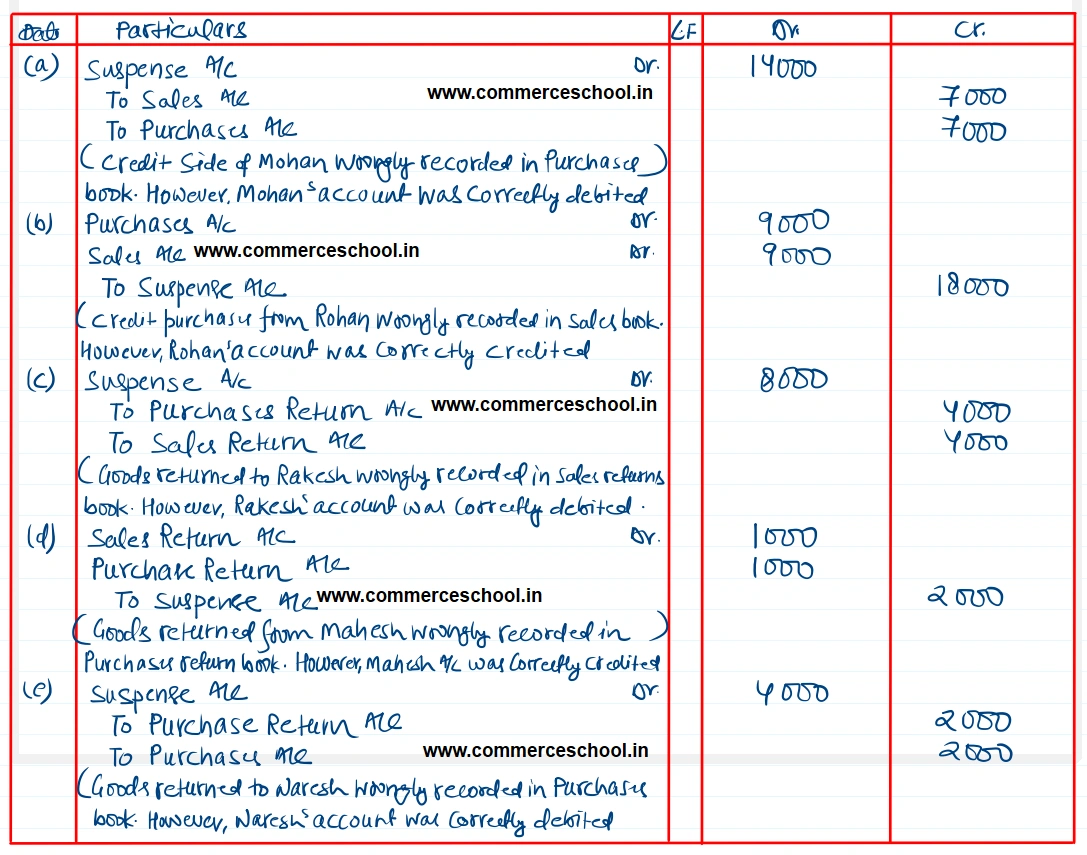 Date Particulars L.F Dr. Cr.
(a) Suspense A/c Dr. 14000
To Sales A/c www.commerceschool.in 7000
To Purchases A/c 7000
(Credit Side of Mohan woongly recorded in Purchases)
book. However, Mohan's account was correctly debited
(b) Purchases A/c Dr. 9000
Sales A/c www.commerceschool.in Dr. 9000
To Suspense A/c 18000
(Credit purchases from Rohan woongly recorded in sales book.
However, Rohan's account was correctly credited
(c) Suspense A/c Dr. 8000
To Purchases Return A/c www.commerceschool.in 4000
To Sales Return A/c 4000
(Goods returned to Rakesh woongly recorded in sales returns
book. However, Rakesh' account was correctly debited.
(d) Sales Return A/c Dr. 1000
Purchase Return A/c 1000
To Suspense A/c www.commerceschool.in 2000
(Goods returned from Mahesh woongly recorded in)
Purchases return book. However, Mahesh A/c was correctly credited
(e) Suspense A/c Dr. 4000
To Purchase Return A/c 2000
To Purchases A/c www.commerceschool.in 2000
(Goods returned to Naresh woongly recorded in Purchases
book. However, Naresh's account was correctly debited